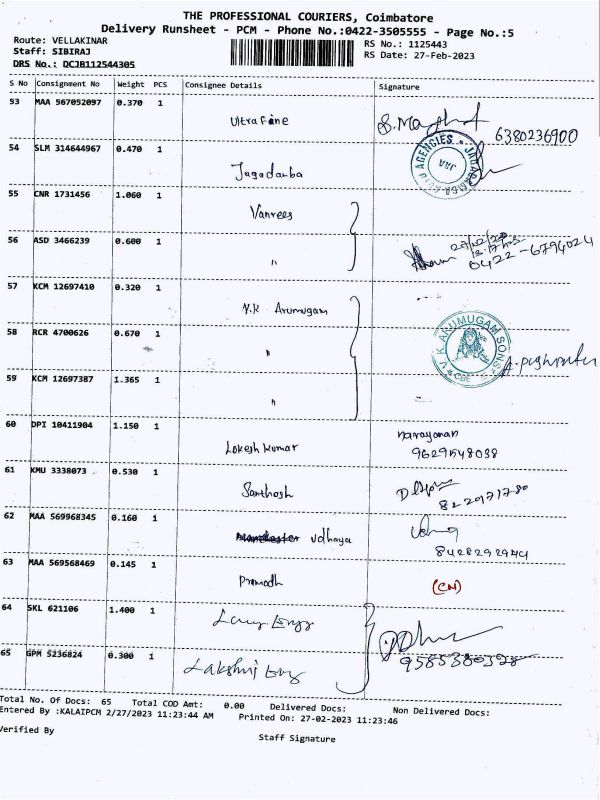 THE PROFESSIONAL COURIERS, Coimbatore
Delivery Runsheet - PCM - Phone No.:0422-3505555 - Page No.:5
Route: VELLAKINAR
RS No.: 1125443
Staff: SIBIRAJ
RS Date: 27-Feb-2023
DRS No.: DCJB112544305
S No Consignment No Weight PCS Consignee Details Signature
53 MAA 567052097 0.370 1 Ultra Fine
6380236900
54 SLM 314644967 0.470 1 Jagadamba
AGENCIES
JAA
55 CNR 1731456 1.060 1 Vanrees
56 ASD 3466239 0.600 1 "
0422-6794024
57 KCM 12697410 0.320 1 V.K Arumugam
58 RCR 4700626 0.670 1 "
V.K. ARUMUGAM SONS
CBE
59 KCM 12697387 1.365 1 "
60 DPI 10411904 1.150 1 Lokesh Kumar narayanan
9629548038
61 KMU 3338073 0.530 1 Santhosh
8220971780
62 MAA 569968345 0.160 1 Udhaya
8428292944
63 MAA 569568469 0.145 1 Pramodh (CN)
64 SKL 621106 1.400 1
65 GPM 5236824 0.300 1 Lakshmi Eng
9585380328
Total No. Of Docs: 65 Total COD Amt: 0.00 Delivered Docs: Non Delivered Docs:
Entered By :KALAIPCM 2/27/2023 11:23:44 AM Printed On: 27-02-2023 11:23:46
Verified By
Staff Signature